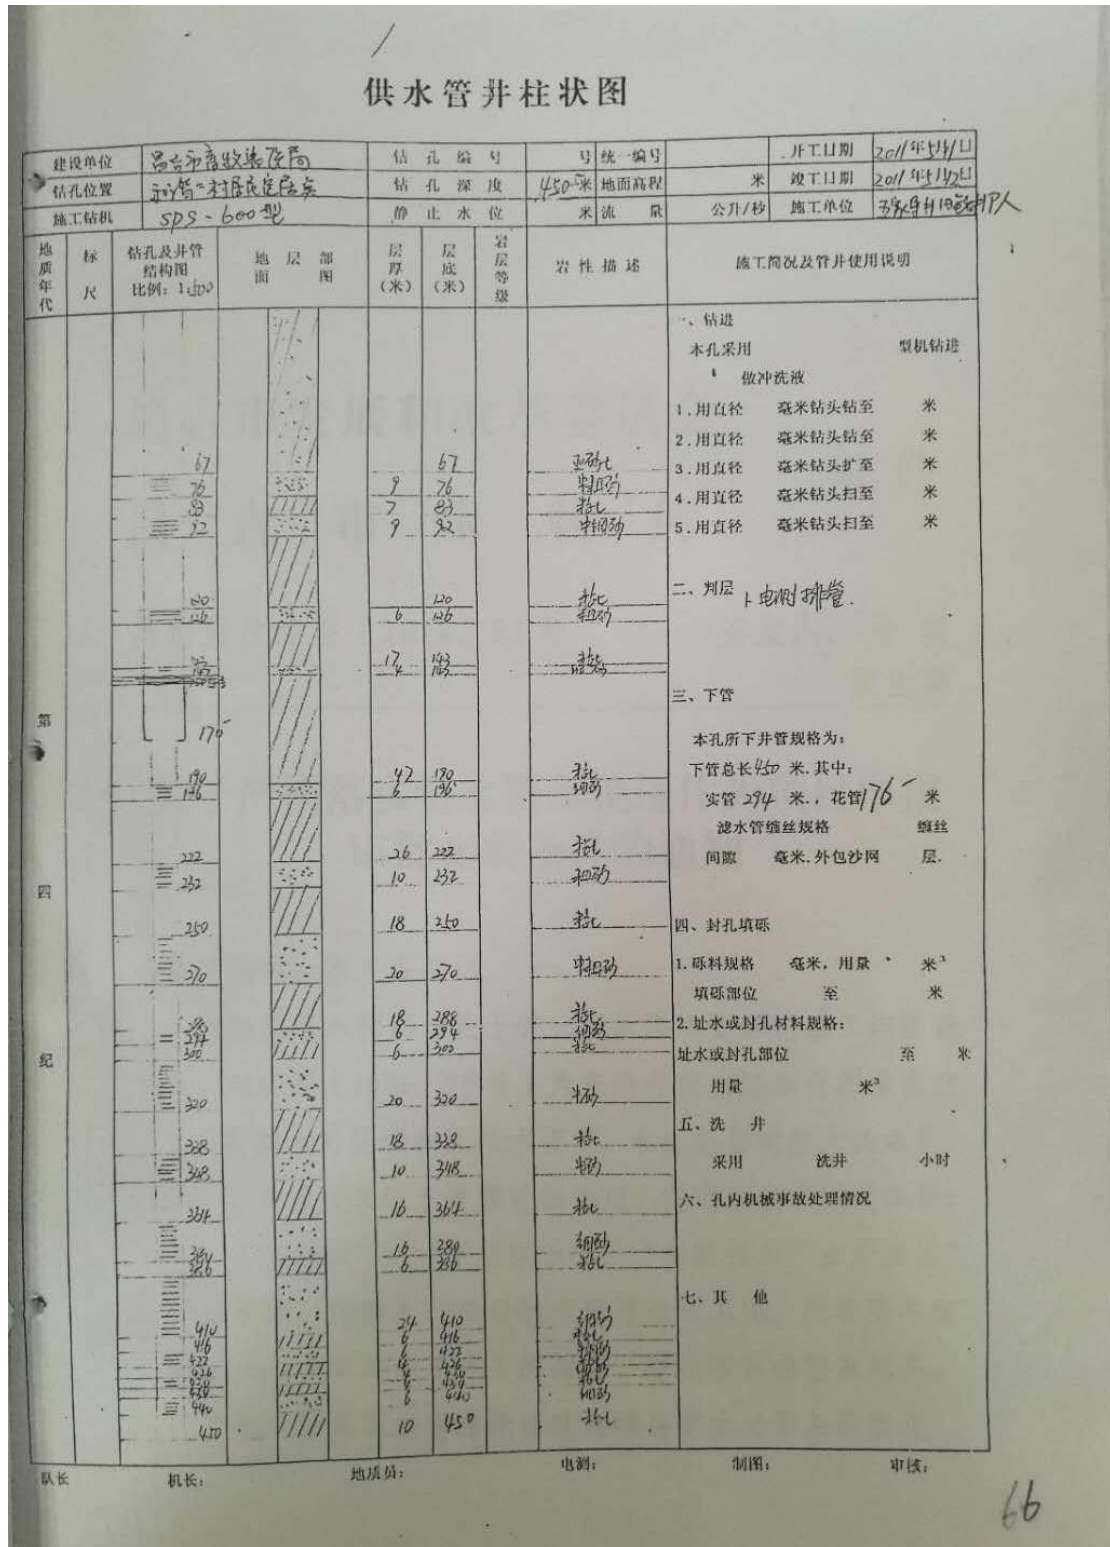 供水管井柱状图
建设单位 昌吉市畜牧 局 钻孔编号 号 统一编号 开工日期 2011年5月1日
钻孔位置 二村居民定居点 钻孔深度 450米 地面高程 米 竣工日期 2011年5月12日
施工钻机 SPS-600型 静止水位 米 流量 公升/秒 施工单位
地质年代 标尺 钻孔及井管结构图 比例：1:500 地层部面图 层厚(米) 层底(米) 岩层等级 岩性描述 施工简况及管井使用说明
第四纪
67 67 亚砂土
76 9 76 中粗砂
83 7 83 粘土
92 9 92 中细砂
120 120 粘土
126 6 126 粗砂
17 143 粘土
4
175
190 42 190 粘土
196 6 196 细砂
222 26 222 粘土
232 10 232 细砂
250 18 250 粘土
270 20 270 中粗砂
18 288 粘土
294 6 294 细砂
300 6 300 粘土
320 20 320 中砂
338 18 338 粘土
348 10 348 中砂
364 16 364 粘土
16 280 细砂
6 粘土
410 24 410 细砂
416 6 416 粘土
422 6 422
426 4 426
440 6 440 细砂
450 10 450 粘土
一、钻进
本孔采用 型机钻进
做冲洗液
1.用直径 毫米钻头钻至 米
2.用直径 毫米钻头钻至 米
3.用直径 毫米钻头扩至 米
4.用直径 毫米钻头扫至 米
5.用直径 毫米钻头扫至 米
二、判层 电测排管.
三、下管
本孔所下井管规格为：
下管总长450米.其中：
实管 294 米.，花管176 米
滤水管缠丝规格 缠丝
间隙 毫米.外包沙网 层.
四、封孔填砾
1.砾料规格 毫米，用量 米³
填砾部位 至 米
2.址水或封孔材料规格：
址水或封孔部位 至 米
用量 米³
五、洗井
采用 洗井 小时
六、孔内机械事故处理情况
七、其他
队长 机长： 地质员： 电测： 制图： 审核：
66